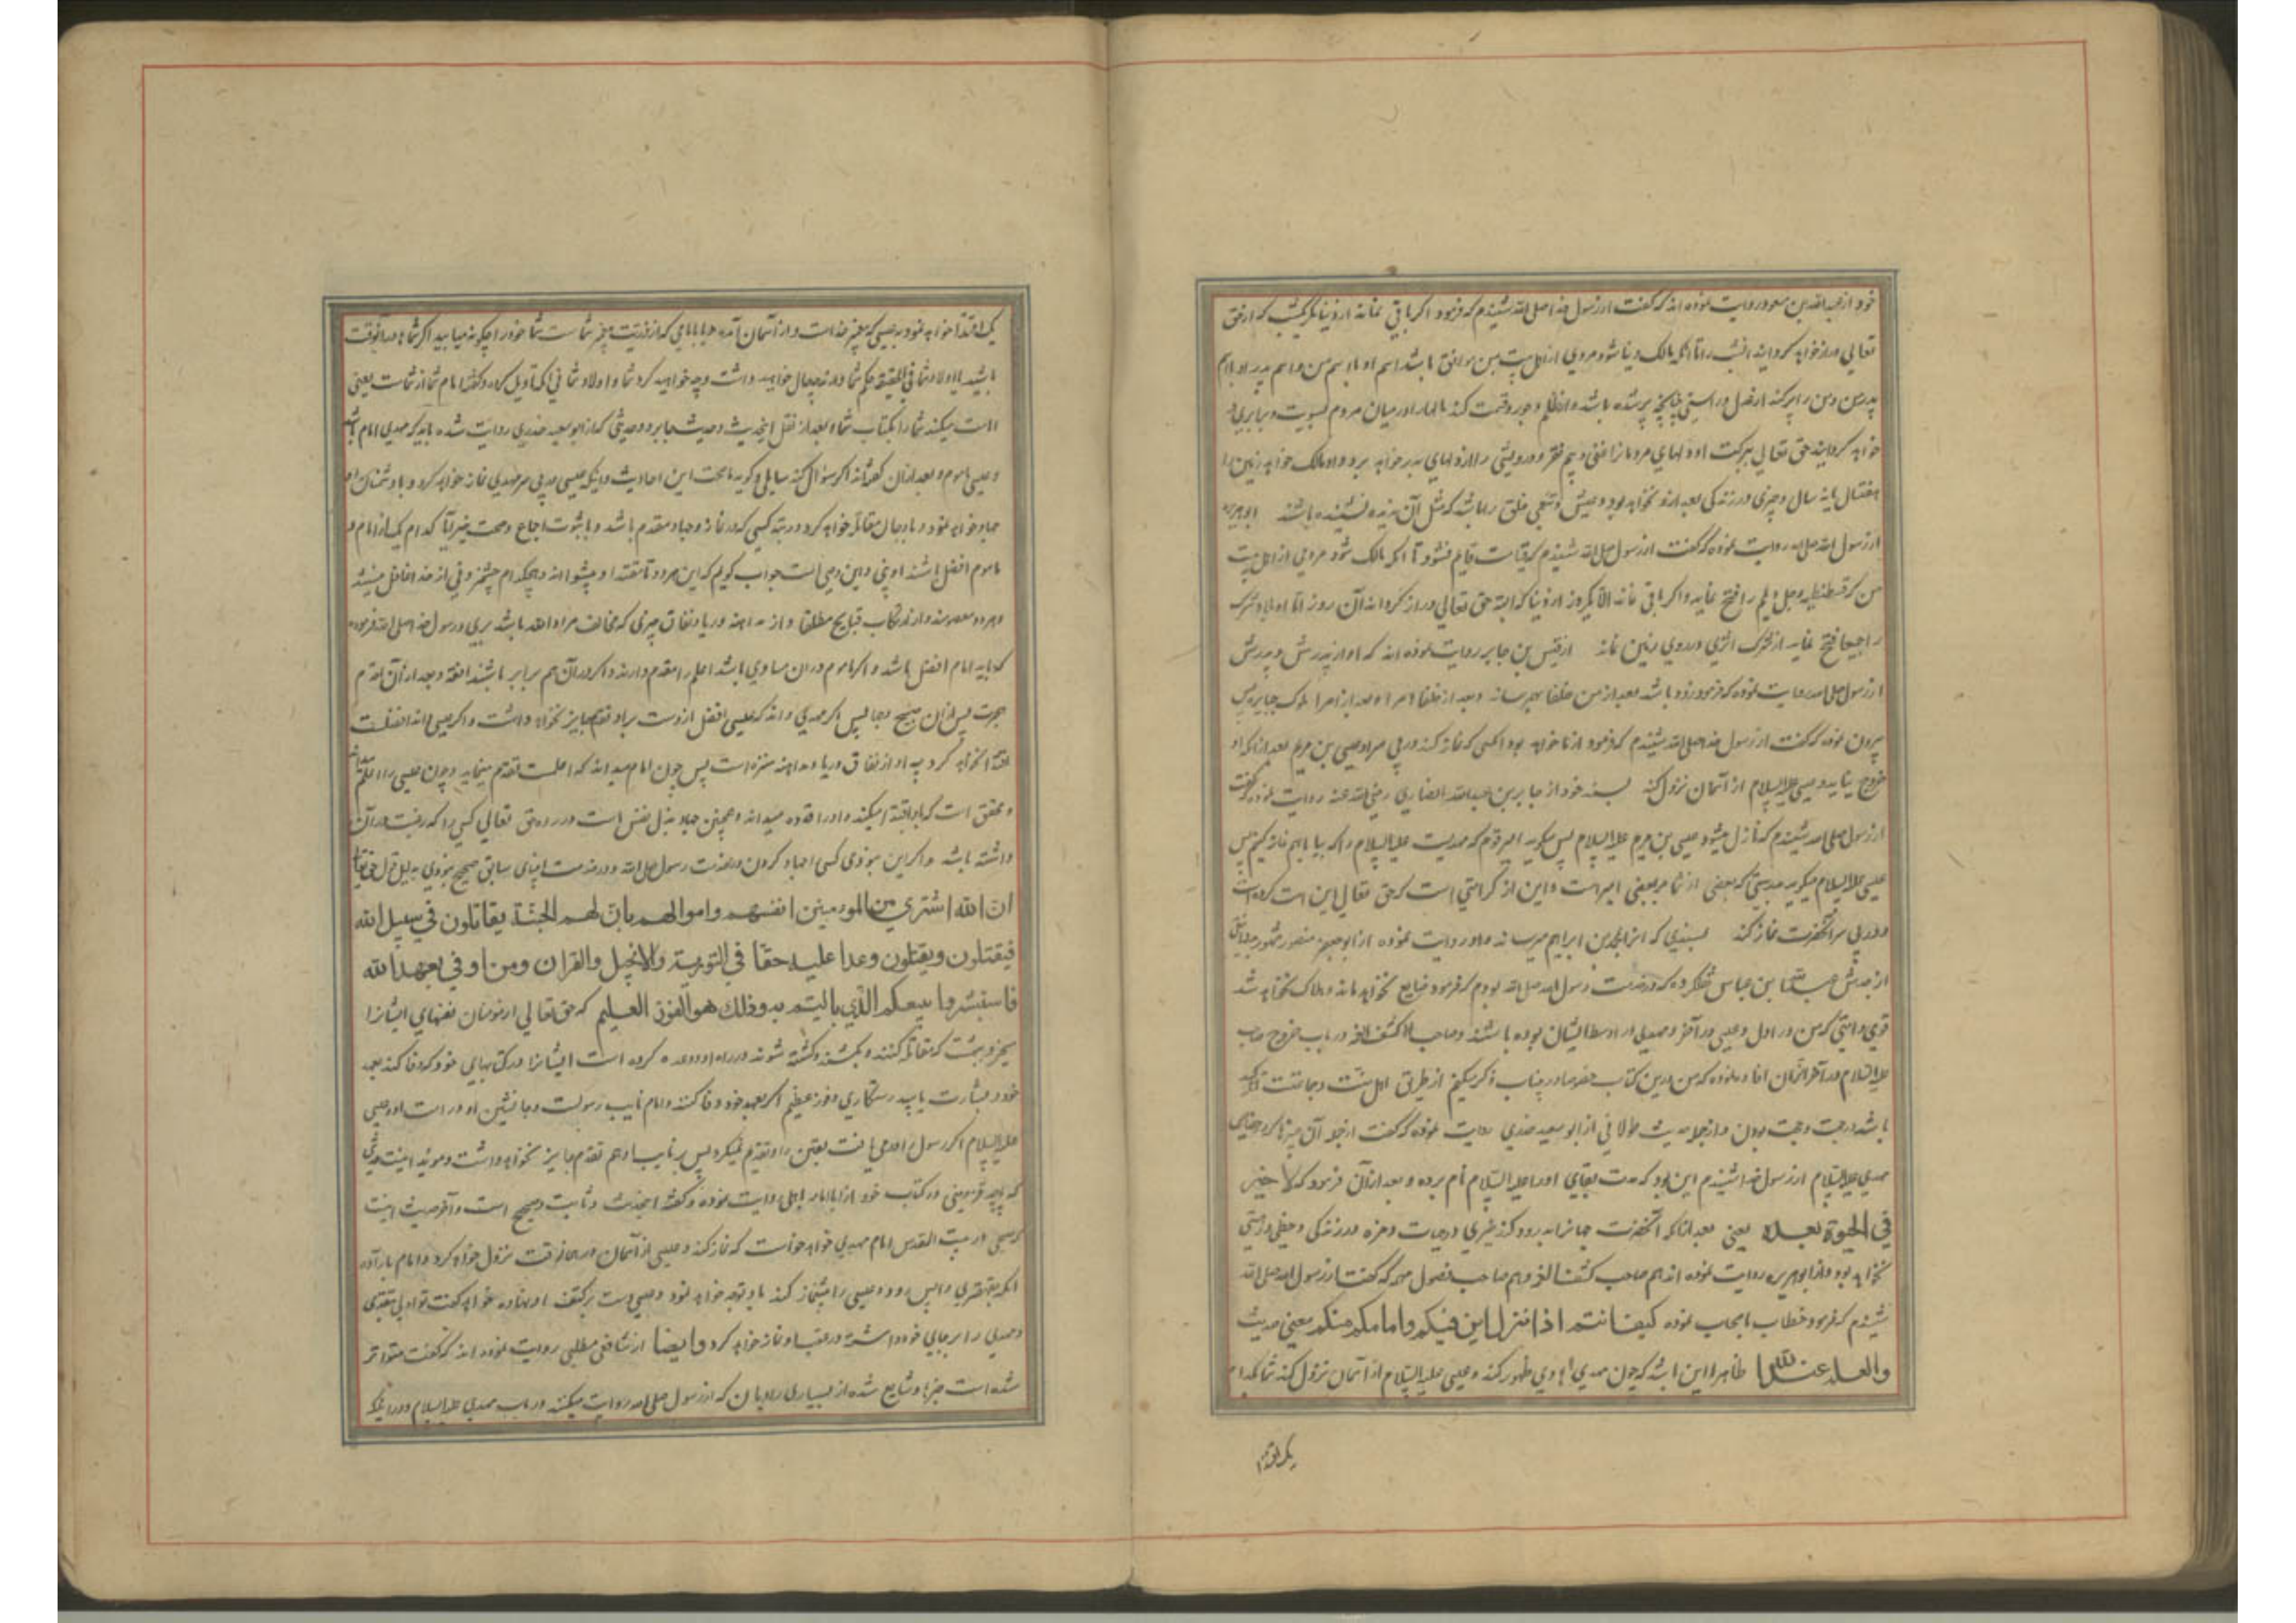 خود از عبدالله بن مسعود روایت نموده اند که گفت از رسول خدا صلی الله شنیدم که فرمود اگر باقی نمانده از دنیا مگر یکشب که از حق
تعالی دراز خواهد گردانید انشب را تا انکه مالک دنیا شود مردی از اهل بیت من موافق باشد اسم او با اسم من و اسم پدر او با اسم
پدر من و من را پر کند از عدل و راستی چنانچه پر شده باشد از ظلم و جور و قسمت کند مالها را در میان مردم بسویت و برابری
خواهد گردانید حق تعالی ببرکت او دلهای مردمانرا غنی و بیم فقر و درویشی را از دلهای بدر خواهد برد و او مالک خواهد زمین را
هفتسال یا نه سال و چیزی در زندگی بعد ازو نخواهد بود و عیش و تنعمی خلق را باشد که مثل آن ندیده نشنیده باشند ابوهریره
از رسول الله صلی الله روایت نموده که گفت از رسول صلی الله شنیدم که قیامت قایم نشود تا انکه مالک شود مردی از اهل بیت
من که قسطنطنیه و جبل دیلم را فتح نماید و اگر باقی نمانده الا یکروز از دنیا که البته حق تعالی دراز گرداند آن روز را تا او بلاد شرک
را جمیعا فتح نماید از شرک اثری در روی زمین نماند از قیس بن جابر روایت نموده اند که او از پدرش و پدرش
از رسول صلی الله روایت نموده که فرمود زود باشد بعد از من خلفا بهم رسانند و بعد از خلفا امرا و بعد از امرا ملوک جبابره پس
بیرون نموده که گفت از رسول خدا صلی الله شنیدم که فرمود از ما خواهد بود انکسی که نماز کند در پی سر او عیسی بن مریم بعد از انکه او
خروج نماید و عیسی علیه السلام از آسمان نزول کند بسند خود از جابر بن عبدالله انصاری رضی الله عنه روایت نموده که گفت
از رسول صلی الله شنیدم که نازل میشود عیسی بن مریم علیه السلام پس میگوید امیر قوم که مهدیست علیه السلام را که بیا باهم نماز کنیم پس
عیسی علیه السلام میگوید بدرستی که بعضی از شما بر بعضی امیر است و این از کرامتی است که حق تعالی این امت کرده است
و در پی سر آنحضرت نماز کند بسندی که از ابراهیم میرسانند و او روایت نموده از ابوجعفر منصور
از جدش عبدالله بن عباس که در خدمت رسول الله صلی الله بودم که فرمود ضایع نخواهد ماند و هلاک نخواهد شد
قومی و امتی که من در اول و عیسی در آخر و مهدی در اوسط ایشان بوده باشند و صاحب کشف الغمه در باب خروج
علیه السلام در آخر الزمان افاده نموده که من درین کتاب ذکر میکنم از طریق اهل سنت و جماعت
باشد در حجت و حجت بودن و از جمله حدیث طولانی از ابوسعید خدری روایت نموده که گفت از جمله آن چیزها که در حق
مهدی علیه السلام از رسول خدا شنیدم این بود که مدت بقای او را علیه السلام نام برده و بعد از آن فرمود که لا خیر
فی الحیوة بعده یعنی بعد از انکه آنحضرت جهانرا بدرود کند خیری در حیات و مزه در زندگی و حظی در زیستی
نخواهد بود و از ابوهریره روایت نموده اند هم صاحب کشف الغمه و هم صاحب فصول مهمه که گفت از رسول الله صلی الله
شنیدم که فرمود خطاب باصحاب نموده کیف انتم اذا نزل ابن فیکم وامامکم منکم معنی حدیث
والعلم عند الله ظاهرا این باشد که چون مهدی هادی ظهور کند و عیسی علیه السلام از آسمان نزول کند شما بکدام
یک اقتدا
یک اقتدا خواهید نمود بعیسی که پیغمبر خداست و از آسمان آمده یا بامامی که از ذریت پیغمبر شماست شما خود را چگونه میابید اگر شما در آنوقت
باشید یا اولاد شما فی الحقیقه حکم شما در چه حال خواهید داشت و چه خواهید کرد شما و اولاد شما فی انکه تاویل کرده و گفته امام شما از شماست یعنی
امامت میکند شما را بکتاب شما و بعد از نقل اینحدیث و حدیث جابر و حدیثی که از ابوسعید خدری روایت شده باید که مهدی امام باشد
و عیسی ماموم و بعد از ان گفته اند اگر سؤال کند سایلی و گوید با صحت این احادیث و اینکه عیسی در پی سر مهدی نماز خواهد کرد و با دشمنان او
جهاد خواهد نمود و با دجال مقاتله خواهد کرد و رتبه کسی که در نماز و جهاد مقدم باشد و با ثبوت اجماع و صحت خبر آیا کدام یک از امام و
ماموم افضل باشند در جواب گویم که این هر دو مقتدا و پیشوااند و هیچکدام چشم زدنی از خدا غافل نیستند
و هر دو معصومند و از ارتکاب قبایح مطلقا و از مداهنه و ریا و نفاق چیزی که مخالف مراد الله باشد بری و رسول خدا صلی الله فرموده
که باید امام افضل باشد و اگر ماموم در ان مساوی باشد اعلم را مقدم دارند و اگر در آن هم برابر باشند افقه و بعد از آن اقدم
هجرت پس از ان صبیح وجها پس اگر مهدی داند که عیسی افضل ازوست بر او تقدم جایز نخواهد داشت و اگر عیسی داند افضلست
اقتدا نخواهد کرد چه او از نفاق و ریا و مداهنه منزه است پس چون امام میداند که اعلمست تقدم مینماید و چون عیسی او را اعلم
و محقق است که باو اقتدا میکند و او را قدوه میداند و همچنین جهاد بذل نفس است در راه حق تعالی کسی را که رغبت در آن
داشته باشد و اگر این نبودی کسی جهاد کردن در خدمت رسول صلی الله و در خدمت انبیای سابق صحیح نبودی بدلیل قول حق تعالی
ان الله اشتری من المومنین انفسهم واموالهم بان لهم الجنة یقاتلون فی سبیل الله
فیقتلون ویقتلون وعدا علیه حقا فی التوریة والانجیل والقران ومن اوفی بعهد الله
فاستبشروا ببیعکم الذی بایعتم به وذلک هو الفوز العظیم که حق تعالی از مومنان نفسهای ایشانرا
میخرد ببهشت که مقاتله کنند و بکشند و کشته شوند در راه او و وعده کرده است ایشانرا در کتابهای خود که وفا کند بعهد
خود و بشارت باید رستگاری و فوز عظیم اگر بعهد خود وفا کنند و امام نایب رسولست و جانشین او در امت او و عیسی
علیه السلام اگر رسول را در می یافت بیقین بر او تقدم نمیکرد پس بر نایب او هم تقدم جایز نخواهد داشت و موید اینست حدیثی
که قزوینی در کتاب خود از ابو امامه باهلی روایت نموده و گفته اینحدیث ثابت و صحیح است و آخر حدیث اینست
که صبحی در بیت المقدس امام مهدی خواهد خواست که نماز کند و عیسی از آسمان در همان وقت نزول خواهد کرد و امام باراده
انکه بقهقری واپس رود و عیسی را پیشنماز کند باو توجه خواهد نمود و عیسی دست بر کتف او نهاده خواهد گفت تو اولی بتقدمی
و مهدی را بر جای خود داشته در عقب او نماز خواهد کرد وایضا از شافعی مطلبی روایت نموده اند که گفت متواتر
شده است خبرها و شایع شده از بسیاری راویان که از رسول صلی الله روایت میکنند در باب مهدی علیه السلام و در اینکه